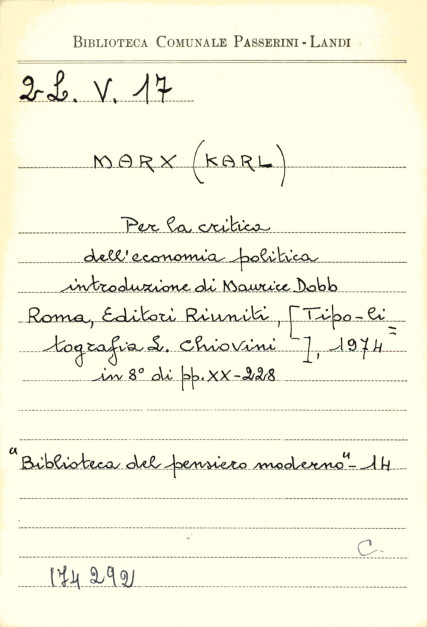 BIBLIOTECA COMUNALE PASSERINI - LANDI
2L. V. 17
MARX (KARL)
Per la critica
dell'economia politica
introduzione di Maurice Dobb
Roma, Editori Riuniti, [Tipo-li=
tografia L. Chiovini ], 1974
in 8° di pp. XX-228
"Biblioteca del pensiero moderno" - 14
C.
174292